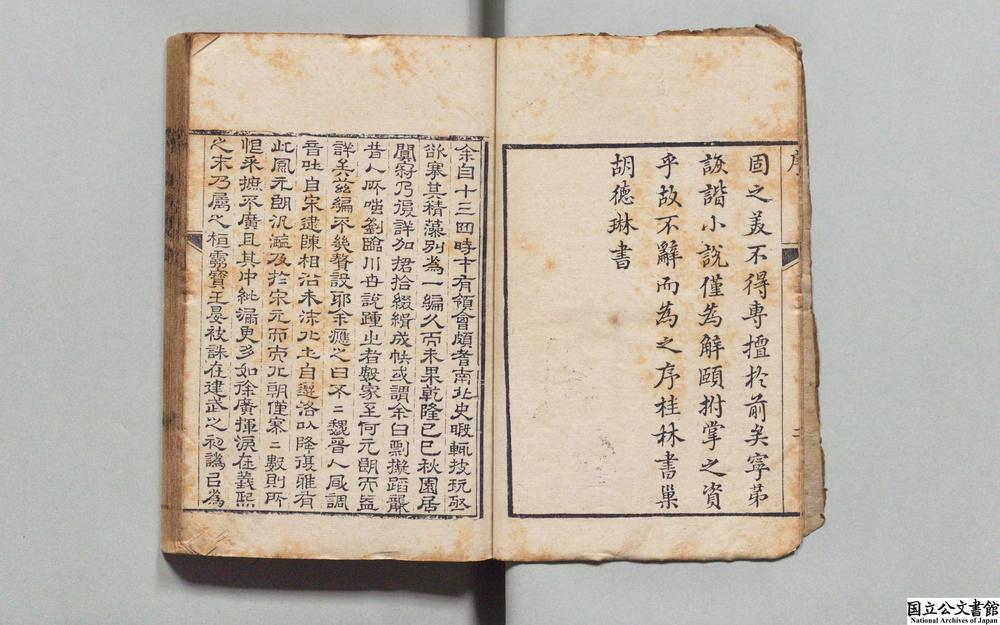 固之美不得專擅扵前矣寧苐
詼諧小說僅為解頤拊掌之資
乎故不辭而為之序桂林書巢
胡德琳書
余自十三四時才有領會頗耆南北史暇輒披玩亟
欲搴其精藻別為一編久而未果乾隆己巳秋園居
闃寂乃復詳加捃拾綴緝成帙或謂余曰剽擬蹈襲
昔人所嗤劉臨川世說踵之者數家至何元朗而益
詳矣茲編不幾贅設耶余應之曰不不魏晉人風調
音吐自宋逮陳相沿未沫北土自遷洛以降復雅有
此風元朗汎濫及於宋元而南北朝僅寥寥數則所
采摭不廣且其中紕漏更多如徐廣揮淚在義熙
之末乃屬之桓靈寶王晏被誅在建武之初譌㠯為
国立公文書館
National Archives of Japan